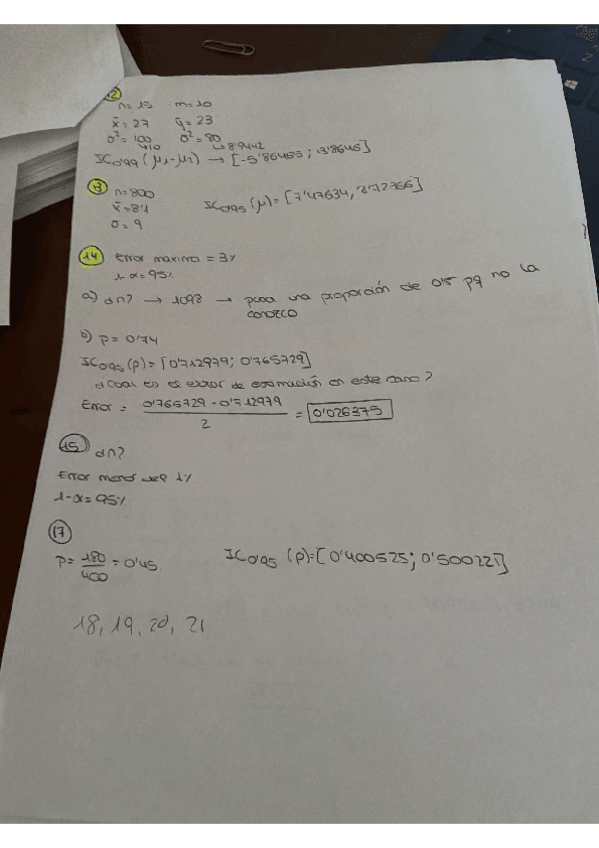 12
n=15 m=10
x̄=27 ȳ=23
σ²=100 σ²=80
↳10 ↳8'9442
IC0'99 (μ1-μ2) → [-5'86465; 13'8646]
13
n=800
x̄=8'1
σ=9
IC0'95 (μ)=[7'47634,
14
Error maximo = 3%
1-α=95%
a) ¿n? → 1098 → para una proporción de 0'5 pq no la
conozco
b) p=0'74
IC0'95(p)=[0'712979; 0'765729]
¿Cual es el error de estimación en este caso?
Error = 0'765729 - 0'712979 / 2 = 0'026375
15 ¿n?
Error menor del 1%
1-α=95%
17
p= 180/400 = 0'45. IC0'95 (p)=[0'400525; 0'500221]
18, 19, 20, 21